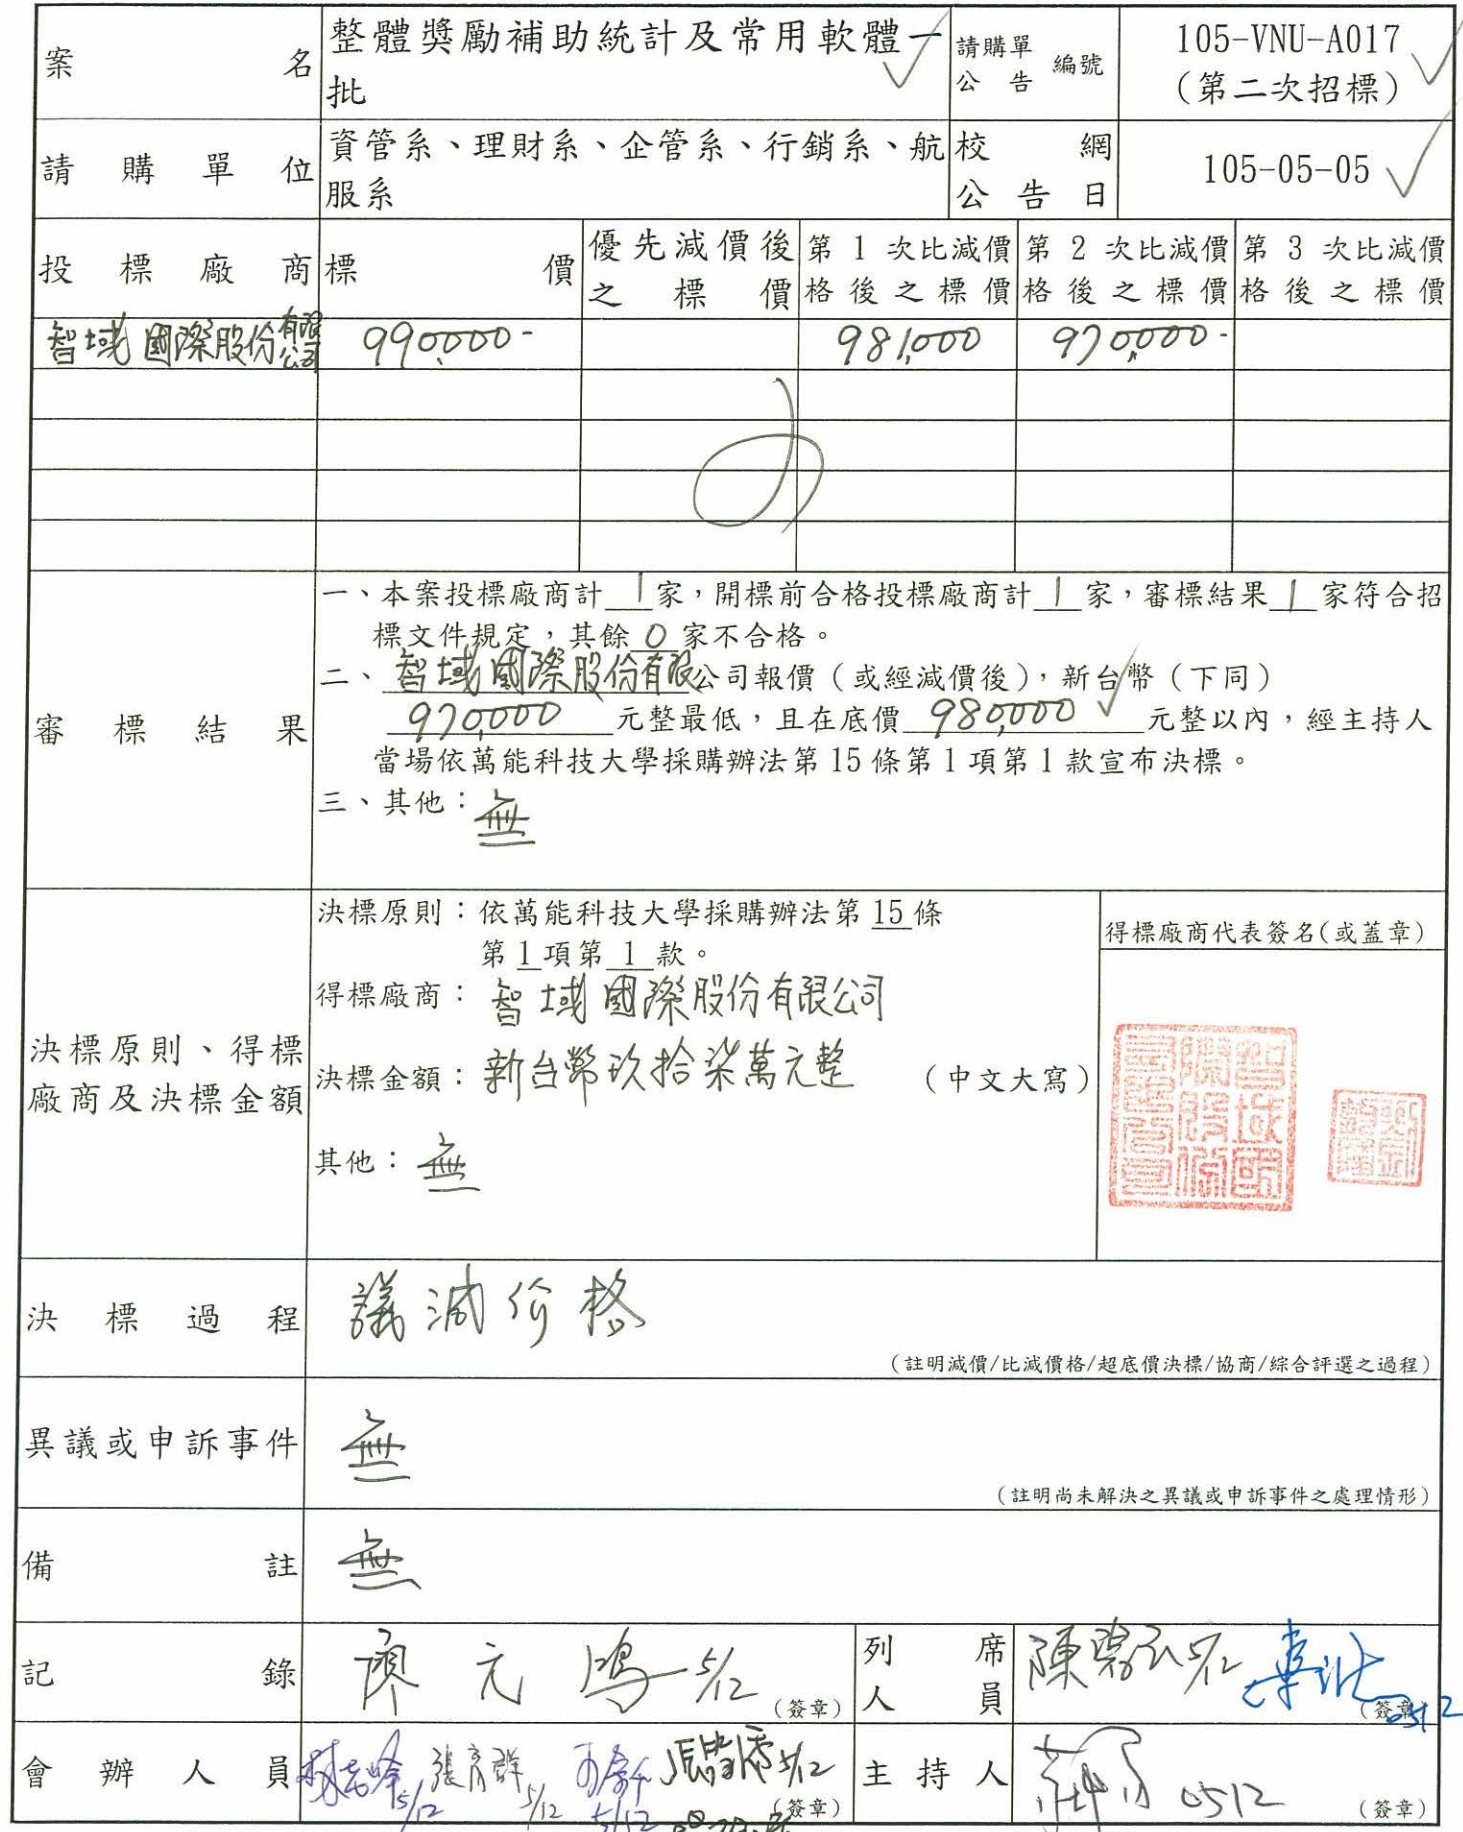 案名
整體獎勵補助統計及常用軟體一
批
請購單
公告
編號
105-VNU-A017
(第二次招標)
請購單位
資管系、理財系、企管系、行銷系、航
服系
校網
公告日
105-05-05
投標廠商
標價
優先減價後
之標價
第 1 次比減價
格後之標價
第 2 次比減價
格後之標價
第 3 次比減價
格後之標價
智域國際股份有限公司
990,000-
981,000
970,000-
審標結果
一、本案投標廠商計 1 家，開標前合格投標廠商計 1 家，審標結果 1 家符合招
標文件規定，其餘 0 家不合格。
二、智域國際股份有限公司報價（或經減價後），新台幣（下同）
970,000 元整最低，且在底價 980,000 元整以內，經主持人
當場依萬能科技大學採購辦法第 15 條第 1 項第 1 款宣布決標。
三、其他：無
決標原則、得標
廠商及決標金額
決標原則：依萬能科技大學採購辦法第 15 條
第 1 項第 1 款。
得標廠商：智域國際股份有限公司
決標金額：新台幣玖拾柒萬元整 （中文大寫）
其他：無
得標廠商代表簽名(或蓋章)
智域國際股份有限公司
決標過程
議減价格
(註明減價/比減價格/超底價決標/協商/綜合評選之過程)
異議或申訴事件
無
(註明尚未解決之異議或申訴事件之處理情形)
備註
無
記錄
廖元鴻 5/12
(簽章)
列席
人員
5/12
0512
(簽章)
會辦人員
5/12
5/12
5/12
5/12
(簽章)
主持人
0512
(簽章)